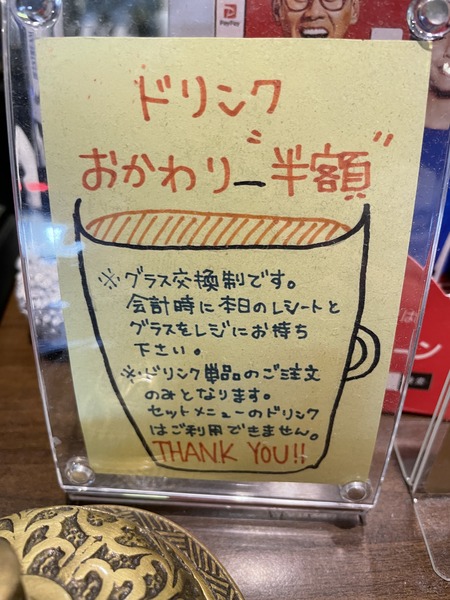 PayPay
ドリンク
おかわり"半額"
※グラス交換制です。
会計時に本日のレシートと
グラスをレジにお持ち
下さい。
※ドリンク単品のご注文
のみとなります。
セットメニューのドリンク
はご利用できません。
THANK YOU!!